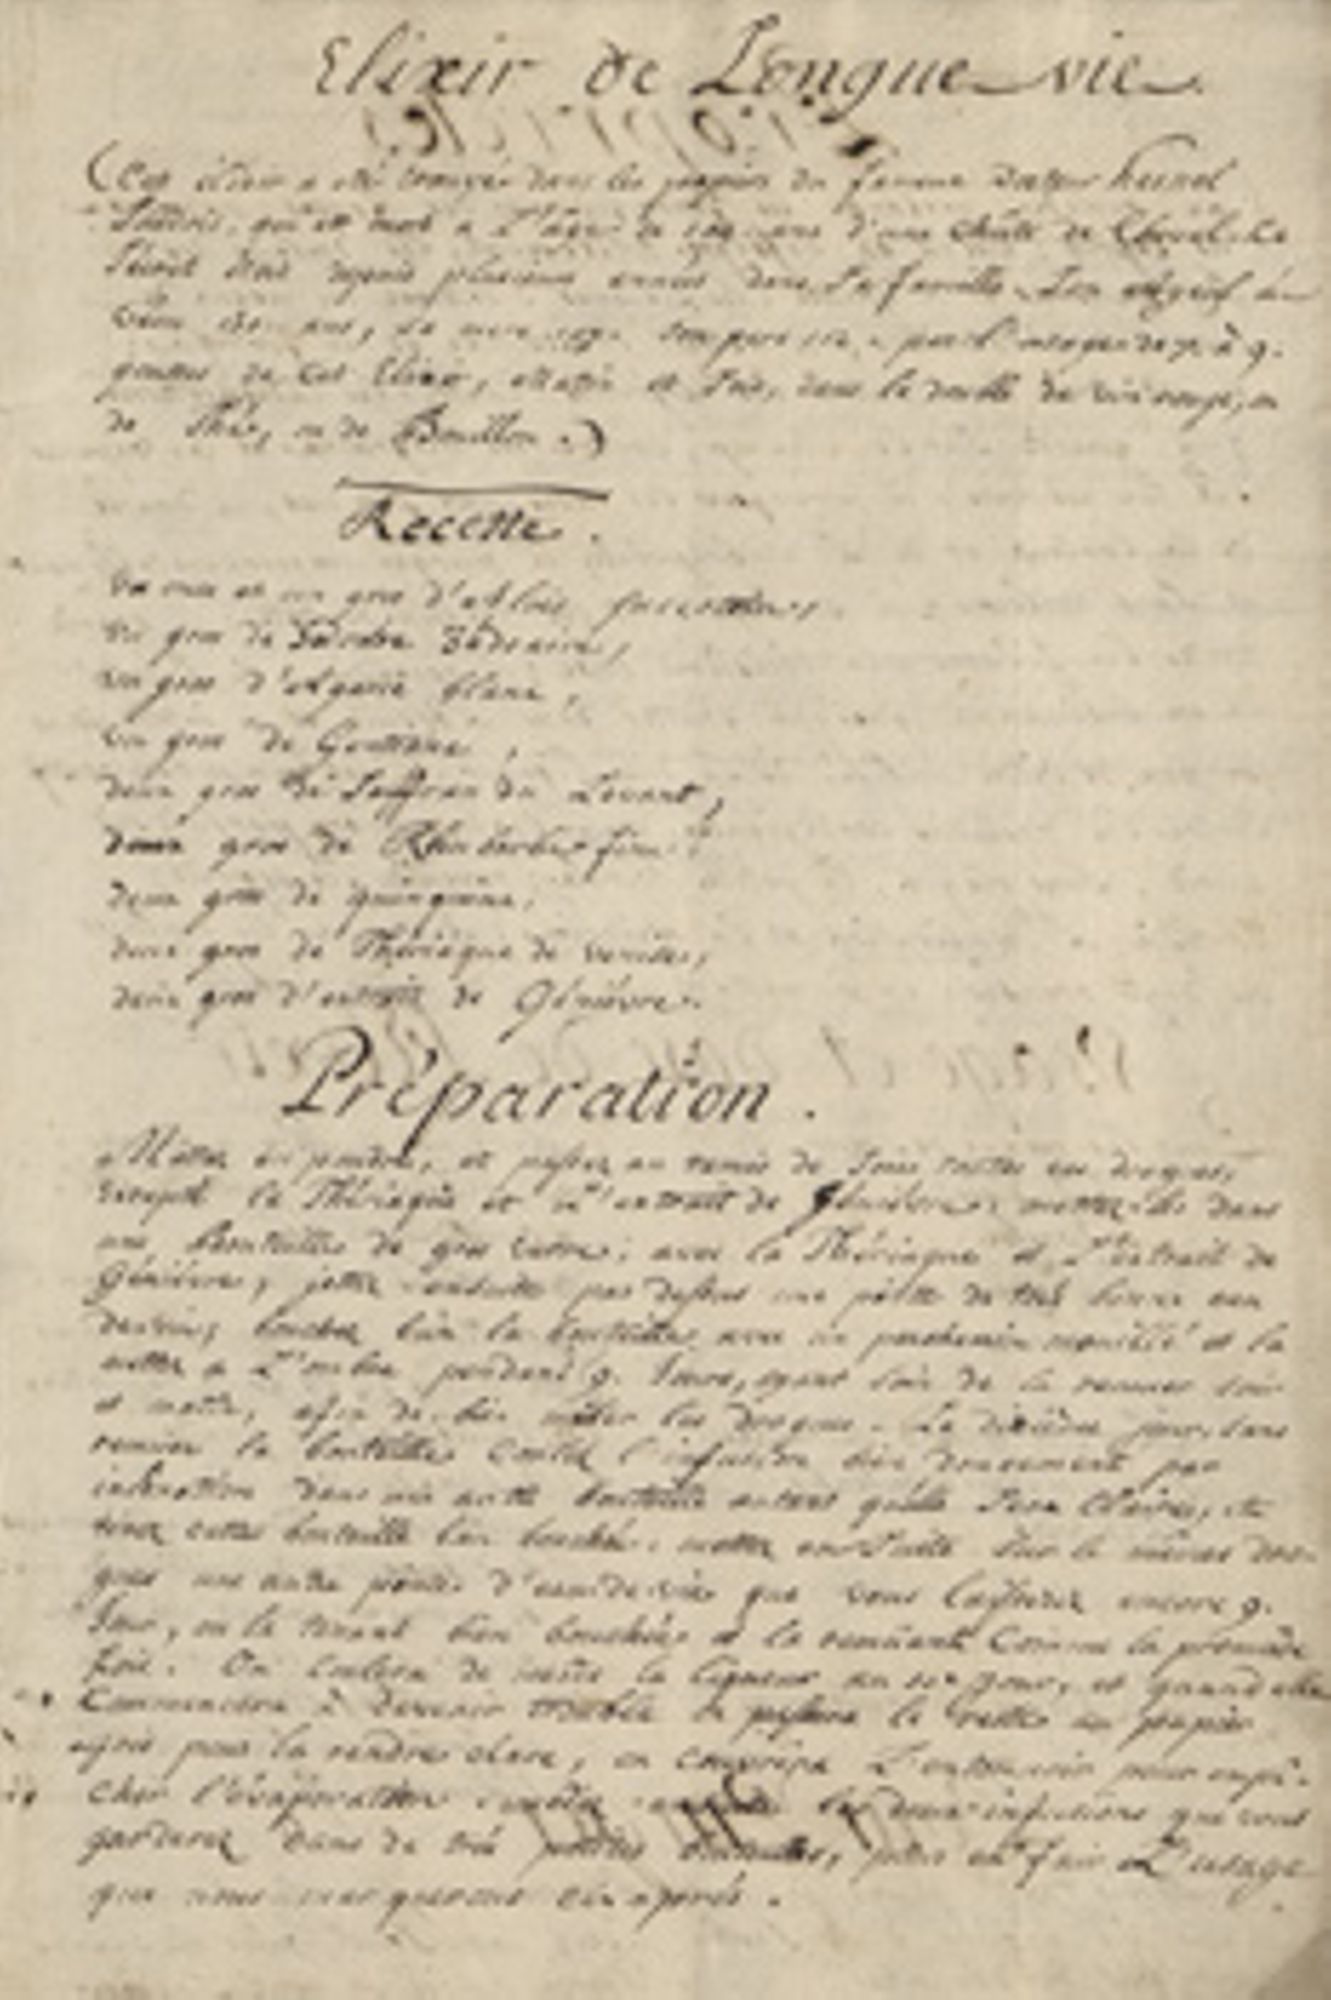 Elixir de Longue vie.
(Cet élixir a été trouvé dans les papiers du fameux Docteur hernel
Suédois, qui est mort à l'âge de ans d'une chûte de Cheval. Le
secret étoit depuis plusieurs années dans Sa famille. Son a
vécu 130 ans, sa mere 107. Son pere 112. par l'usage de 7. à 9.
gouttes de cet Elixir, matin et soir, dans le double de vin rouge, ou
de Thé, ou de Bouillon.)
Recette.
Un once et un gros d'Aloès succotrin,
Un gros de Zedoaire,
Un gros d'Agaric blanc,
Un gros de Gentiane,
deux gros de Saffran du Levant,
deux gros de Rhubarbe fine
deux gros de quinquina,
deux gros de Thériaque de venise,
deux gros d'extrait de Géniévre.
Préparation.
Mettez en poudre, et passez au tamis de Soie toutes ces drogues,
excepté la Thériaque et l'extrait de Géniévre; mettez-les dans
une bouteille de gros verre, avec la Thériaque et L'extrait de
Géniévre, jettez ensuite par dessus une pinte de très bonne eau
de vie; bouchez bien la bouteille avec un parchemin mouillé et la
mettez à L'ombre pendant 9. Jours, ayant soin de la remuer soir
et matin, afin de bien mêler les drogues. Le dixième jour, sans
remuer la bouteille coulez l'infusion bien doucement par
inclination dans une autre bouteille autant qu'elle sera Claire, et
tenez cette bouteille bien bouchée. mettez ensuite sur le mêmes dro-
gues une autre pinte d'eau de vie que vous laisserez encore 9.
Jours, en la tenant bien bouchée et la remuant Comme la première
fois. On coulera de même la liqueur au 10e Jour, et quand elle
Commencera à devenir trouble on passera le reste au papier
gris pour la rendre claire, on couvrira L'entonnoir pour empê-
cher l'évaporation les deux infusions que vous
garderez dans de bouteilles, pour en faire L'usage
que nous marquerons cy-après.